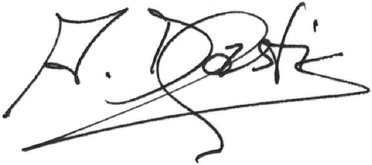 A. Dasti